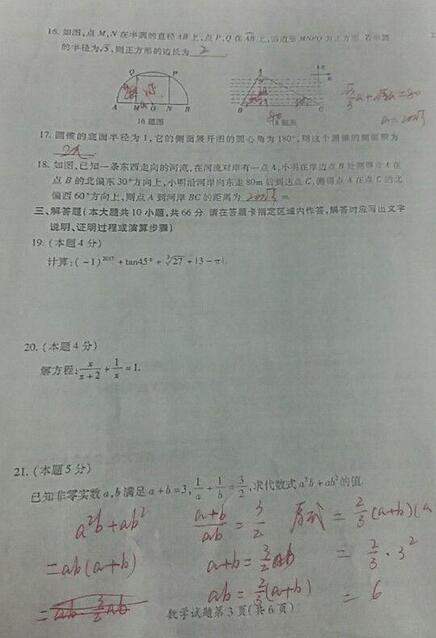 16. 如图,点 M,N 在半圆的直径 AB 上,点 P,Q 在 AB 上,四边形 MNPQ 为正方形.若半圆
的半径为√5,则正方形的边长为 2
Q P
A M O N B
16 题图
A
B C
北
东
80
√3/3 a + √3a = 80
a = 20√3
17. 圆锥的底面半径为 1,它的侧面展开图的圆心角为 180°,则这个圆锥的侧面积为
2π
18. 如图,已知一条东西走向的河流,在河流对岸有一点 A,小明在岸边点 B 处测得点 A 在
点 B 的北偏东 30°方向上,小明沿河岸向东走 80m 后到达点 C,测得点 A 在点 C 的北
偏西 60°方向上,则点 A 到河岸 BC 的距离为 20√3 m
三、解答题(本大题共 10 小题,共 66 分.请在答题卡指定区域内作答,解答时应写出文字
说明、证明过程或演算步骤)
19. (本题 4 分)
计算:(-1)²⁰¹⁷ + tan45° + ³√27 + |3-π|.
20. (本题 4 分)
解方程: x/(x+2) + 1/x = 1.
21. (本题 5 分)
已知非零实数 a,b 满足 a+b=3, 1/a + 1/b = 3/2, 求代数式 a²b + ab² 的值.
a²b+ab²
=ab(a+b)
(a+b)/ab = 3/2
a+b = 3/2 ab
ab = 2/3 (a+b)
原式 = 2/3 (a+b)(a
= 2/3 · 3²
= 6
数学试题第 3 页(共 6 页)